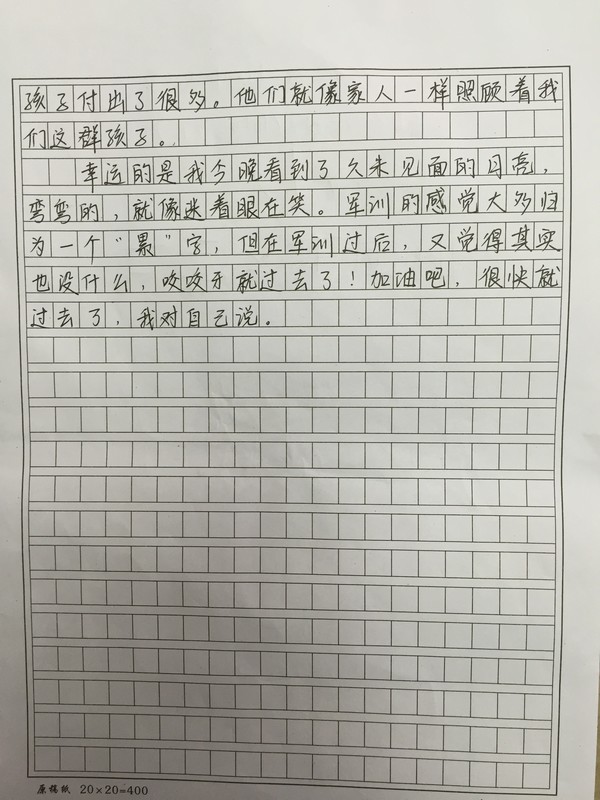 孩子付出了很多。他们就像家人一样照顾着我
们这群孩子。
幸运的是我今晚看到了久未见面的月亮，
弯弯的，就像迷着眼在笑。军训的感觉大多归
为一个“累”字，但在军训过后，又觉得其实
也没什么，咬咬牙就过去了！加油吧，很快就
过去了，我对自己说。
原稿纸 20×20=400